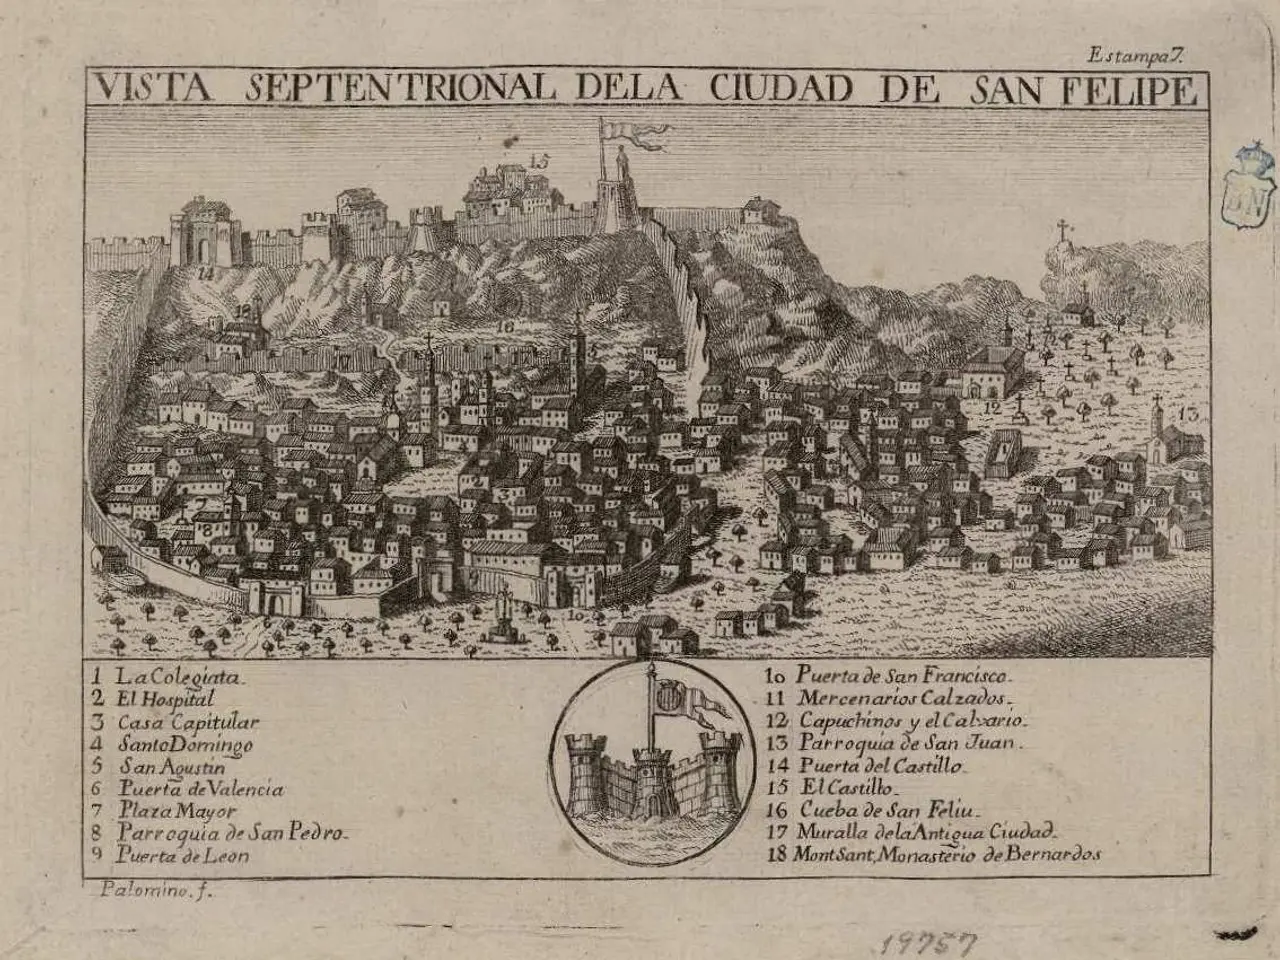 Estampa 7.
VISTA SEPTENTRIONAL DELA CIUDAD DE SAN FELIPE
15
14
18
16
17
12
13
3
7
8
10
1 La Colegiata.
2 El Hospital
3 Casa Capitular
4 Santo Domingo
5 San Agustin
6 Puerta de Valencia
7 Plaza Mayor
8 Parroquia de San Pedro.
9 Puerta de Leon
10 Puerta de San Francisco.
11 Mercenarios Calzados.
12 Capuchinos y el Calvario.
13 Parroquia de San Juan.
14 Puerta del Castillo.
15 El Castillo.
16 Cueba de San Feliu.
17 Muralla dela Antigua Ciudad.
18 MontSant, Monasterio de Bernardos
Palomino. f.
BN
19757